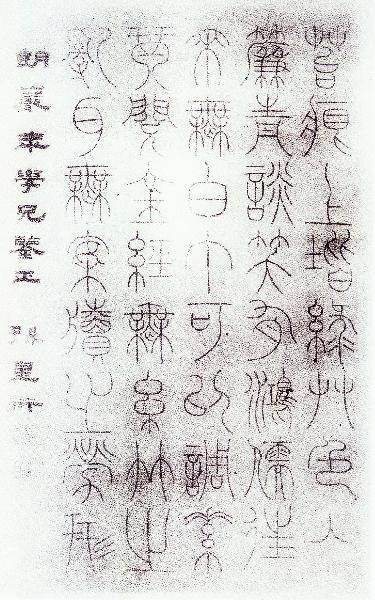 苔痕上階綠艸色入
簾青談笑有鴻儒往
來無白丁可以調素
琴閱金經無絲竹之
亂耳無案牘之勞形
胡本學兄鑒正